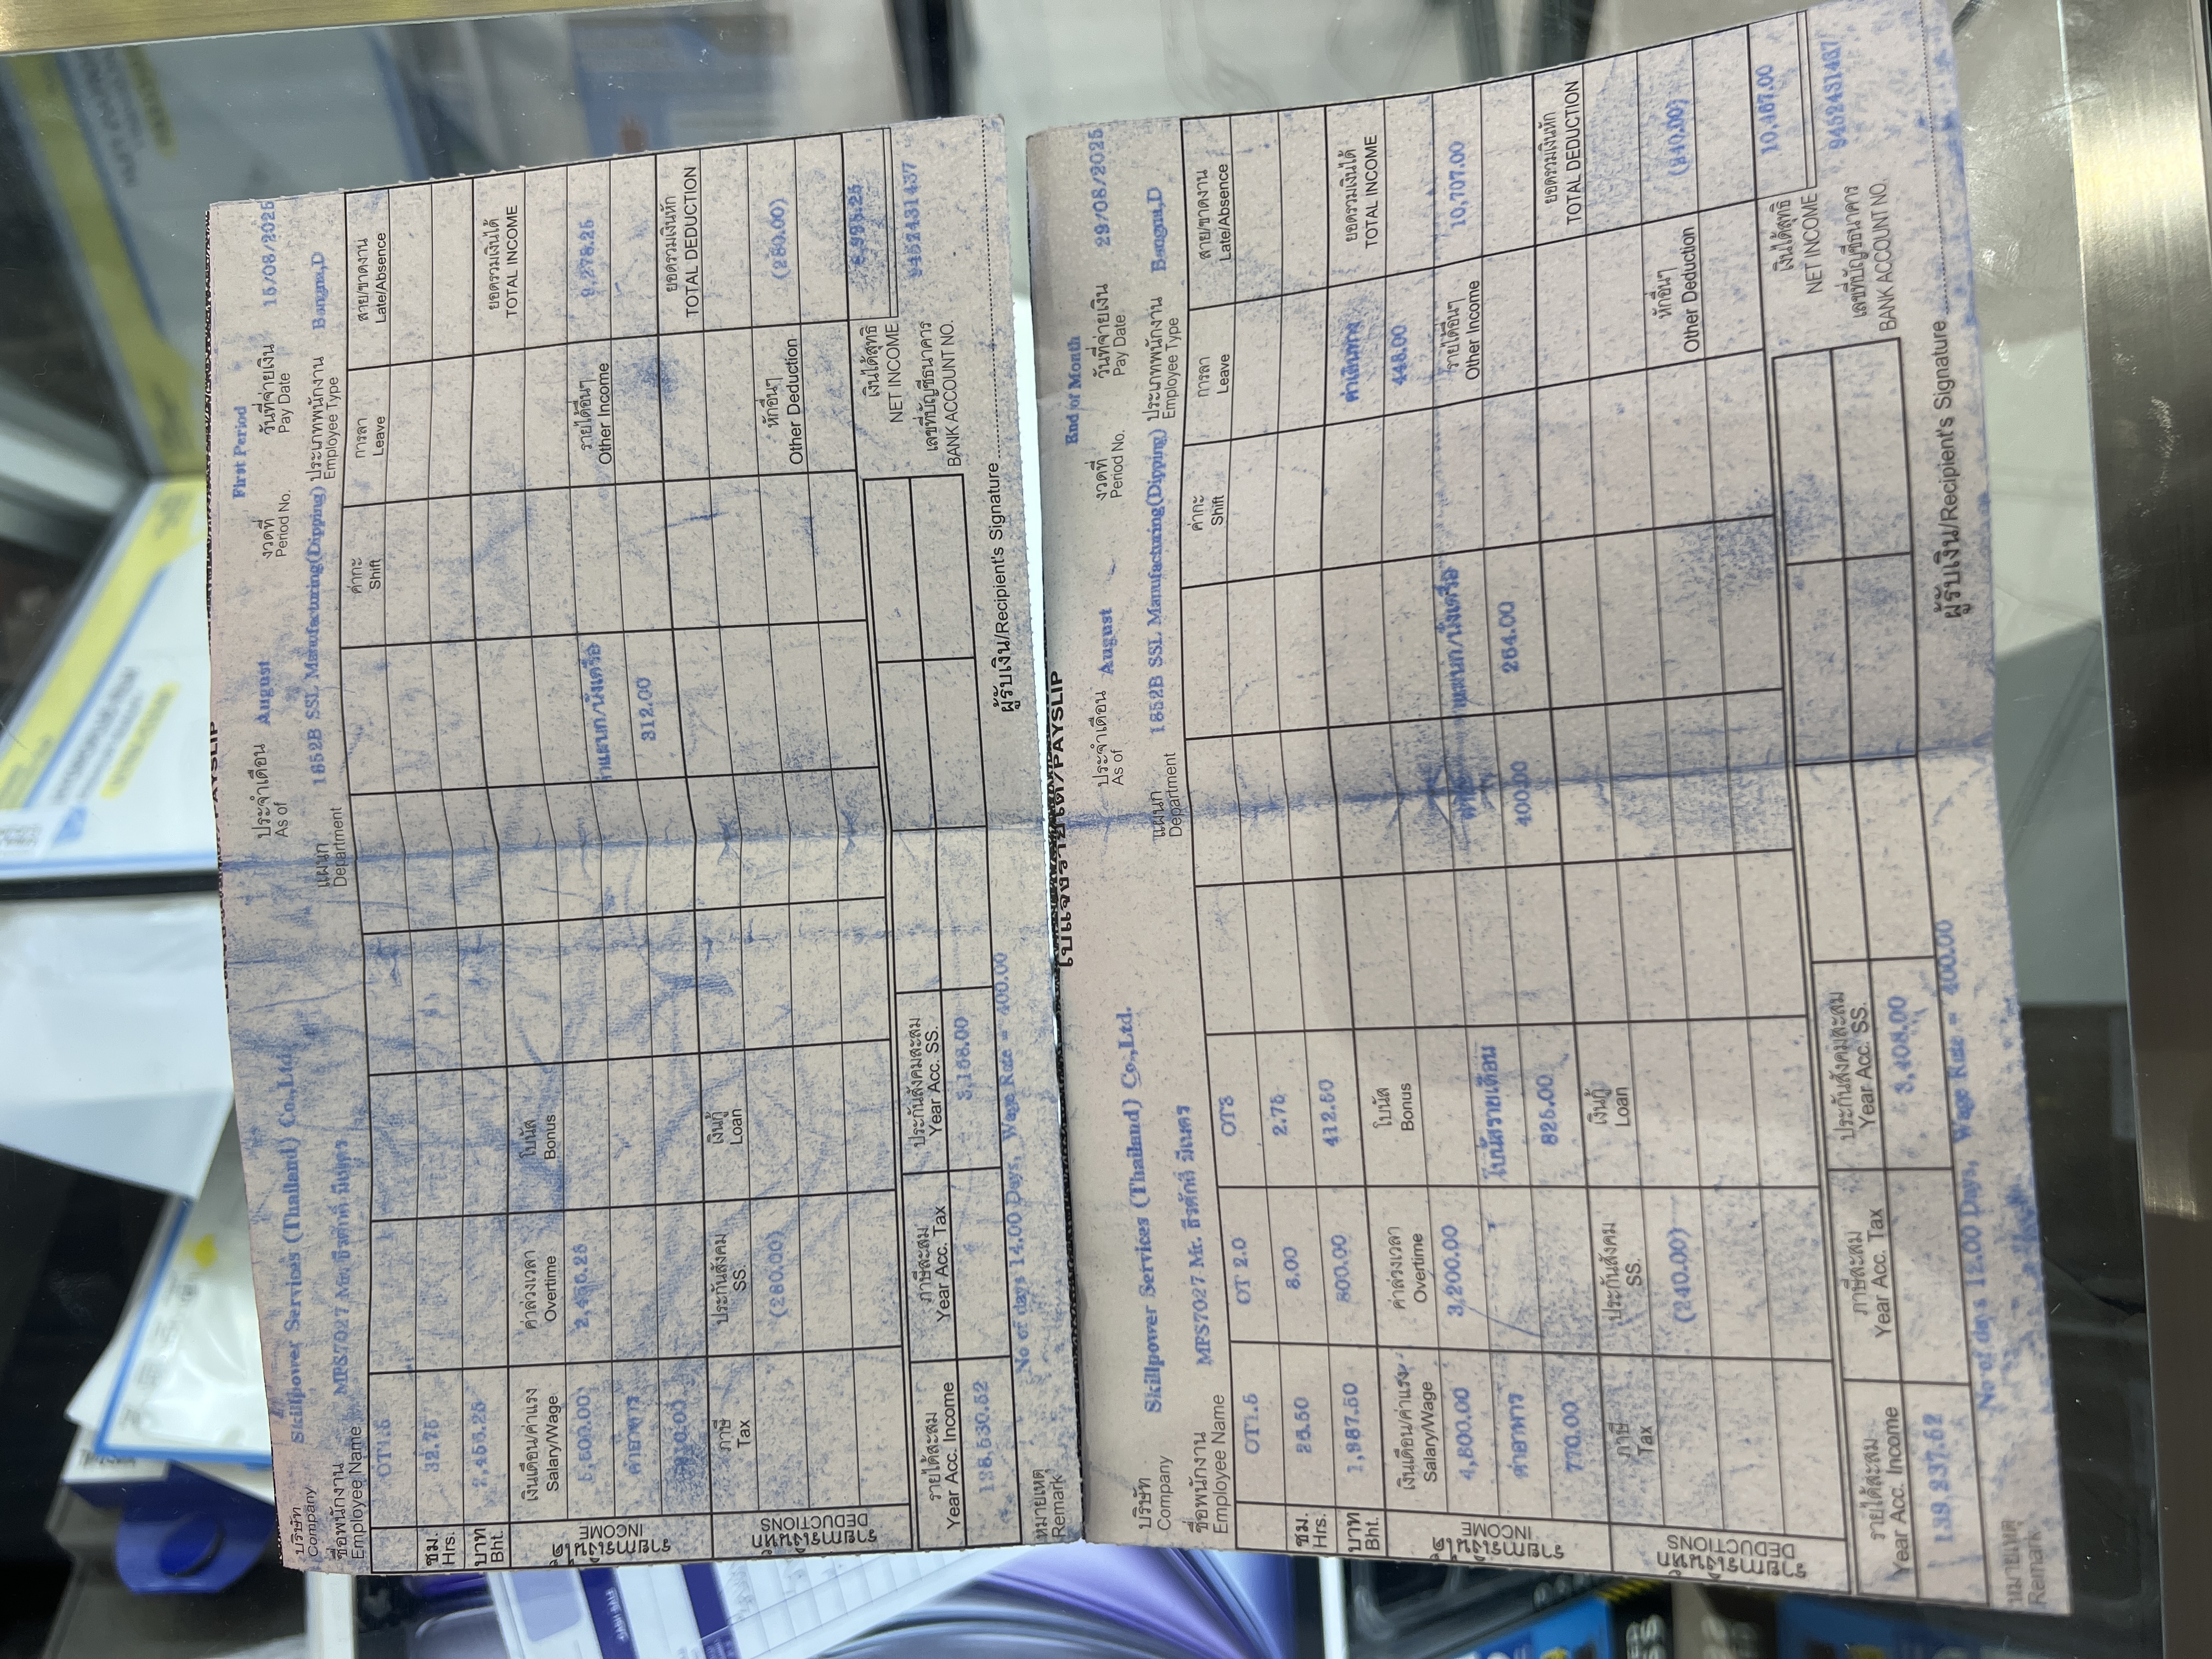 บริษัท Skillpower Services (Thailand) Co.,Ltd.
Company
ประจำเดือน August
As of
งวดที่ First Period
Period No.
วันที่จ่ายเงิน 15/08/2025
Pay Date
ชื่อพนักงาน MPS7027 Mr.
Employee Name
แผนก 1852B SSL Manufacturing(Dipping)
Department
ประเภทพนักงาน Bangna,D
Employee Type
OT1.5
ค่ากะ การลา สาย/ขาดงาน
Shift Leave Late/Absence
ชม. 32.75
Hrs.
บาท 2,456.25
Bht.
รายการเงินได้
INCOME
เงินเดือน/ค่าแรง ค่าล่วงเวลา โบนัส ยอดรวมเงินได้
Salary/Wage Overtime Bonus TOTAL INCOME
5,600.00 2,456.25 รายได้อื่นๆ 9,278.25
Other Income
ค่าอาหาร
910.00 312.00
รายการเงินหัก
DEDUCTIONS
ภาษี ประกันสังคม เงินกู้ ยอดรวมเงินหัก
Tax SS. Loan TOTAL DEDUCTION
(280.00) หักอื่นๆ (280.00)
Other Deduction
รายได้สะสม ภาษีสะสม ประกันสังคมสะสม เงินได้สุทธิ
Year Acc. Income Year Acc. Tax Year Acc. SS. NET INCOME 8,998.25
128,530.52 3,168.00 เลขที่บัญชีธนาคาร 9452431437
BANK ACCOUNT NO.
หมายเหตุ No of days 14.00 Days, Wage Rate = 400.00
Remark
ผู้รับเงิน/Recipient's Signature
ใบแจ้งรายได้/PAYSLIP
บริษัท Skillpower Services (Thailand) Co.,Ltd.
Company
ประจำเดือน August
As of
งวดที่ End of Month
Period No.
วันที่จ่ายเงิน 29/08/2025
Pay Date
ชื่อพนักงาน MPS7027 Mr.
Employee Name
แผนก 1852B SSL Manufacturing(Dipping)
Department
ประเภทพนักงาน Bangna,D
Employee Type
OT1.5 OT 2.0 OT3
ค่ากะ การลา สาย/ขาดงาน
Shift Leave Late/Absence
ชม. 26.50 8.00 2.75
Hrs.
บาท 1,987.50 800.00 412.50
Bht.
รายการเงินได้
INCOME
เงินเดือน/ค่าแรง ค่าล่วงเวลา โบนัส ยอดรวมเงินได้
Salary/Wage Overtime Bonus 448.00 TOTAL INCOME
4,800.00 3,200.00 รายได้อื่นๆ 10,707.00
Other Income
ค่าอาหาร โบนัสรายเดือน
770.00 825.00 400.00 264.00
รายการเงินหัก
DEDUCTIONS
ภาษี ประกันสังคม เงินกู้ ยอดรวมเงินหัก
Tax SS. Loan TOTAL DEDUCTION
(240.00) หักอื่นๆ (240.00)
Other Deduction
รายได้สะสม ภาษีสะสม ประกันสังคมสะสม เงินได้สุทธิ
Year Acc. Income Year Acc. Tax Year Acc. SS. NET INCOME 10,467.00
139,237.52 3,408.00 เลขที่บัญชีธนาคาร 9452431437
BANK ACCOUNT NO.
หมายเหตุ No of days 12.00 Days, Wage Rate = 400.00
Remark
ผู้รับเงิน/Recipient's Signature